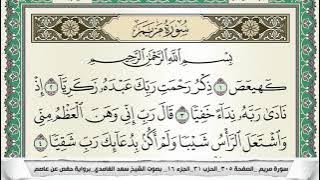 سُورَةُ مَرْيَمَ
بِسْمِ اللَّهِ الرَّحْمَٰنِ الرَّحِيمِ
كٓهيعٓصٓ ١ ذِكْرُ رَحْمَتِ رَبِّكَ عَبْدَهُۥ زَكَرِيَّآ ٢ إِذْ
نَادَىٰ رَبَّهُۥ نِدَآءً خَفِيًّا ٣ قَالَ رَبِّ إِنِّى وَهَنَ ٱلْعَظْمُ مِنِّى
وَٱشْتَعَلَ ٱلرَّأْسُ شَيْبًا وَلَمْ أَكُنۢ بِدُعَآئِكَ رَبِّ شَقِيًّا ٤
سورة مريم _الصفحة ٣٠٥_ الحزب ٣١_ الجزء ١٦_ بصوت الشيخ سعد الغامدي_ برواية حفص عن عاصم